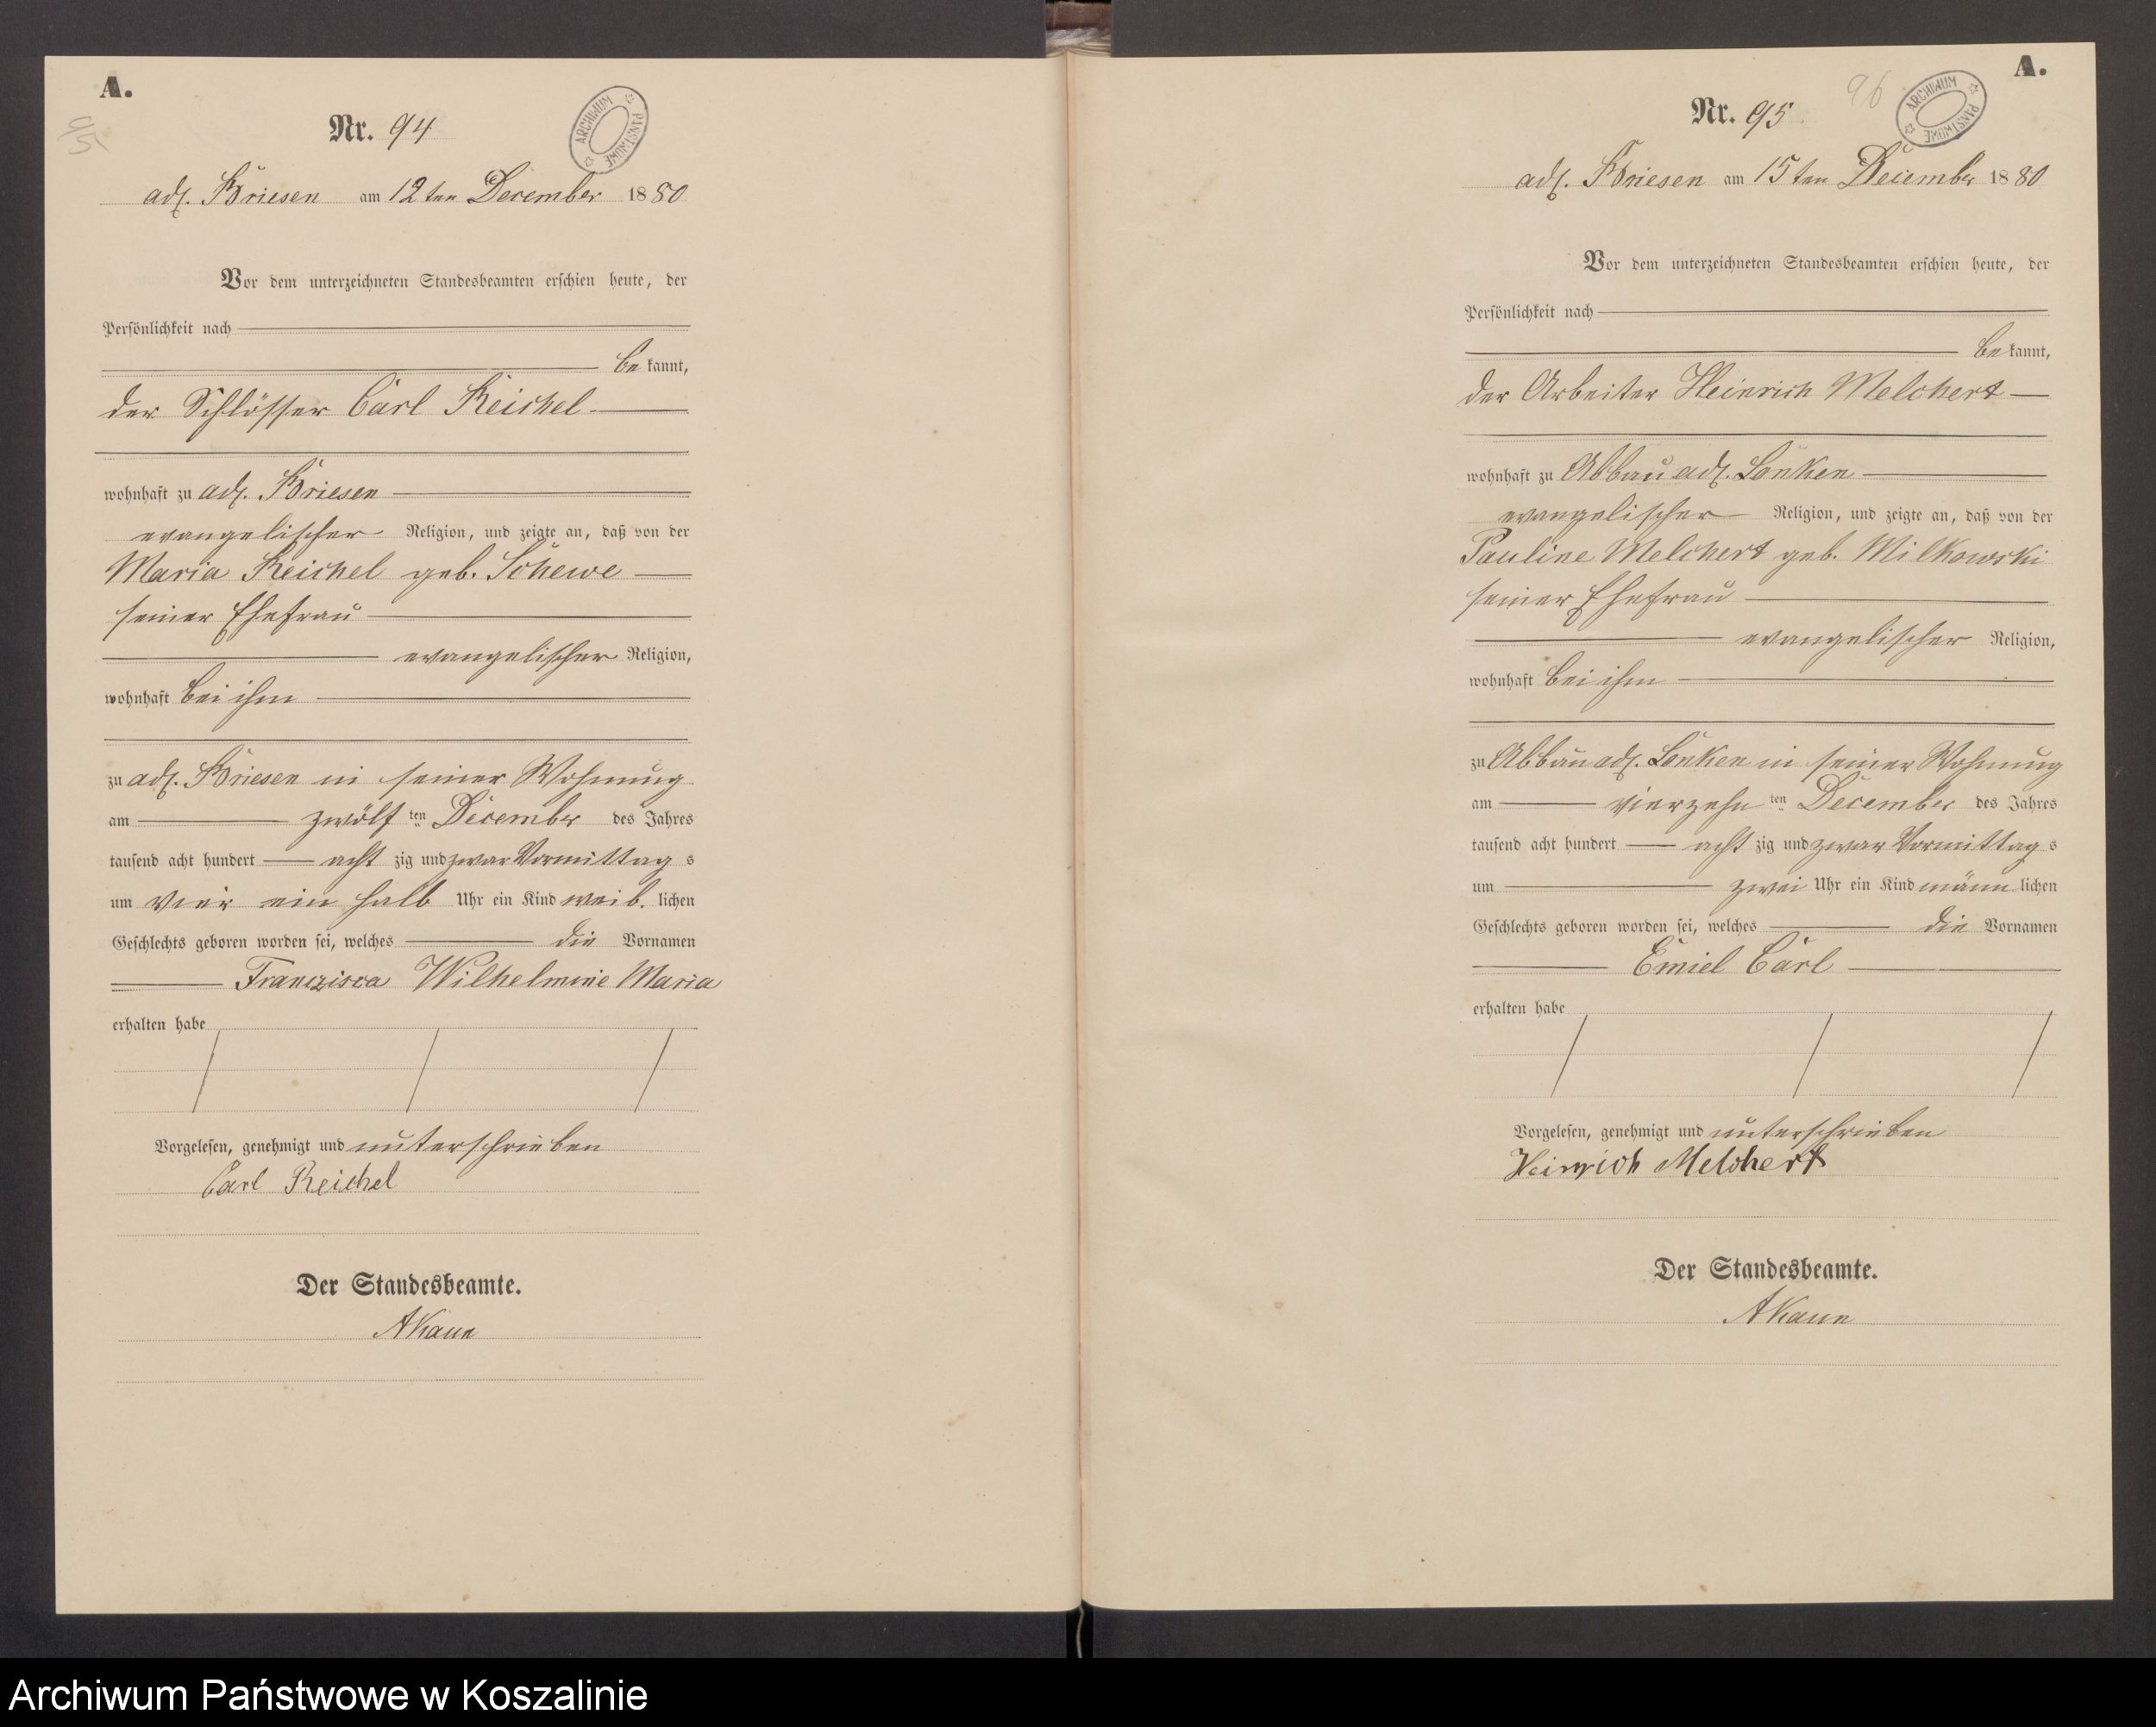 A.
Nr. 94
ARCHIWUM PAŃSTWOWE
95
adl. Briesen am 12ten December 1880
Vor dem unterzeichneten Standesbeamten erschien heute, der
Persönlichkeit nach
bekannt,
der Schlösser Carl Reichel
wohnhaft zu adl. Briesen
evangelischer Religion, und zeigte an, daß von der
Maria Reichel geb. Schewe
seiner Ehefrau
evangelischer Religion,
wohnhaft bei ihm
zu adl. Briesen in seiner Wohnung
am zwölf ten December des Jahres
tausend acht hundert acht zig und zwar Vormittag s
um vier ein halb Uhr ein Kind weib. lichen
Geschlechts geboren worden sei, welches die Vornamen
Franczisca Wilhelmine Maria
erhalten habe
Vorgelesen, genehmigt und unterschrieben
Carl Reichel
Der Standesbeamte.
A.
96
Nr. 95
ARCHIWUM PAŃSTWOWE
adl. Briesen am 15ten December 1880
Vor dem unterzeichneten Standesbeamten erschien heute, der
Persönlichkeit nach
bekannt,
der Arbeiter Heinrich Melchert
wohnhaft zu Abbau adl. Lonken
evangelischer Religion, und zeigte an, daß von der
Pauline Melchert geb. Milkowski
seiner Ehefrau
evangelischer Religion,
wohnhaft bei ihm
zu Abbau adl. Lonken in seiner Wohnung
am vierzehn ten December des Jahres
tausend acht hundert acht zig und zwar Vormittag s
um zwei Uhr ein Kind männ lichen
Geschlechts geboren worden sei, welches die Vornamen
Emiel Carl
erhalten habe
Vorgelesen, genehmigt und unterschrieben
Heinrich Melchert
Der Standesbeamte.
Archiwum Państwowe w Koszalinie